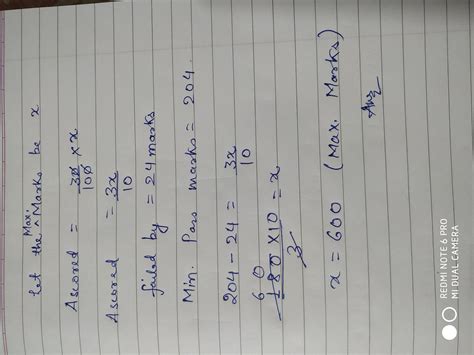 Let the Max. Marks be x.
A scored = 30/100 × x
A scored = 3x/10
failed by = 24 marks
Min. Pass marks = 204.
204 - 24 = 3x/10
60
180 × 10 / 3 = x
x = 600 (Max. Marks)
Ans
REDMI NOTE 6 PRO
MI DUAL CAMERA